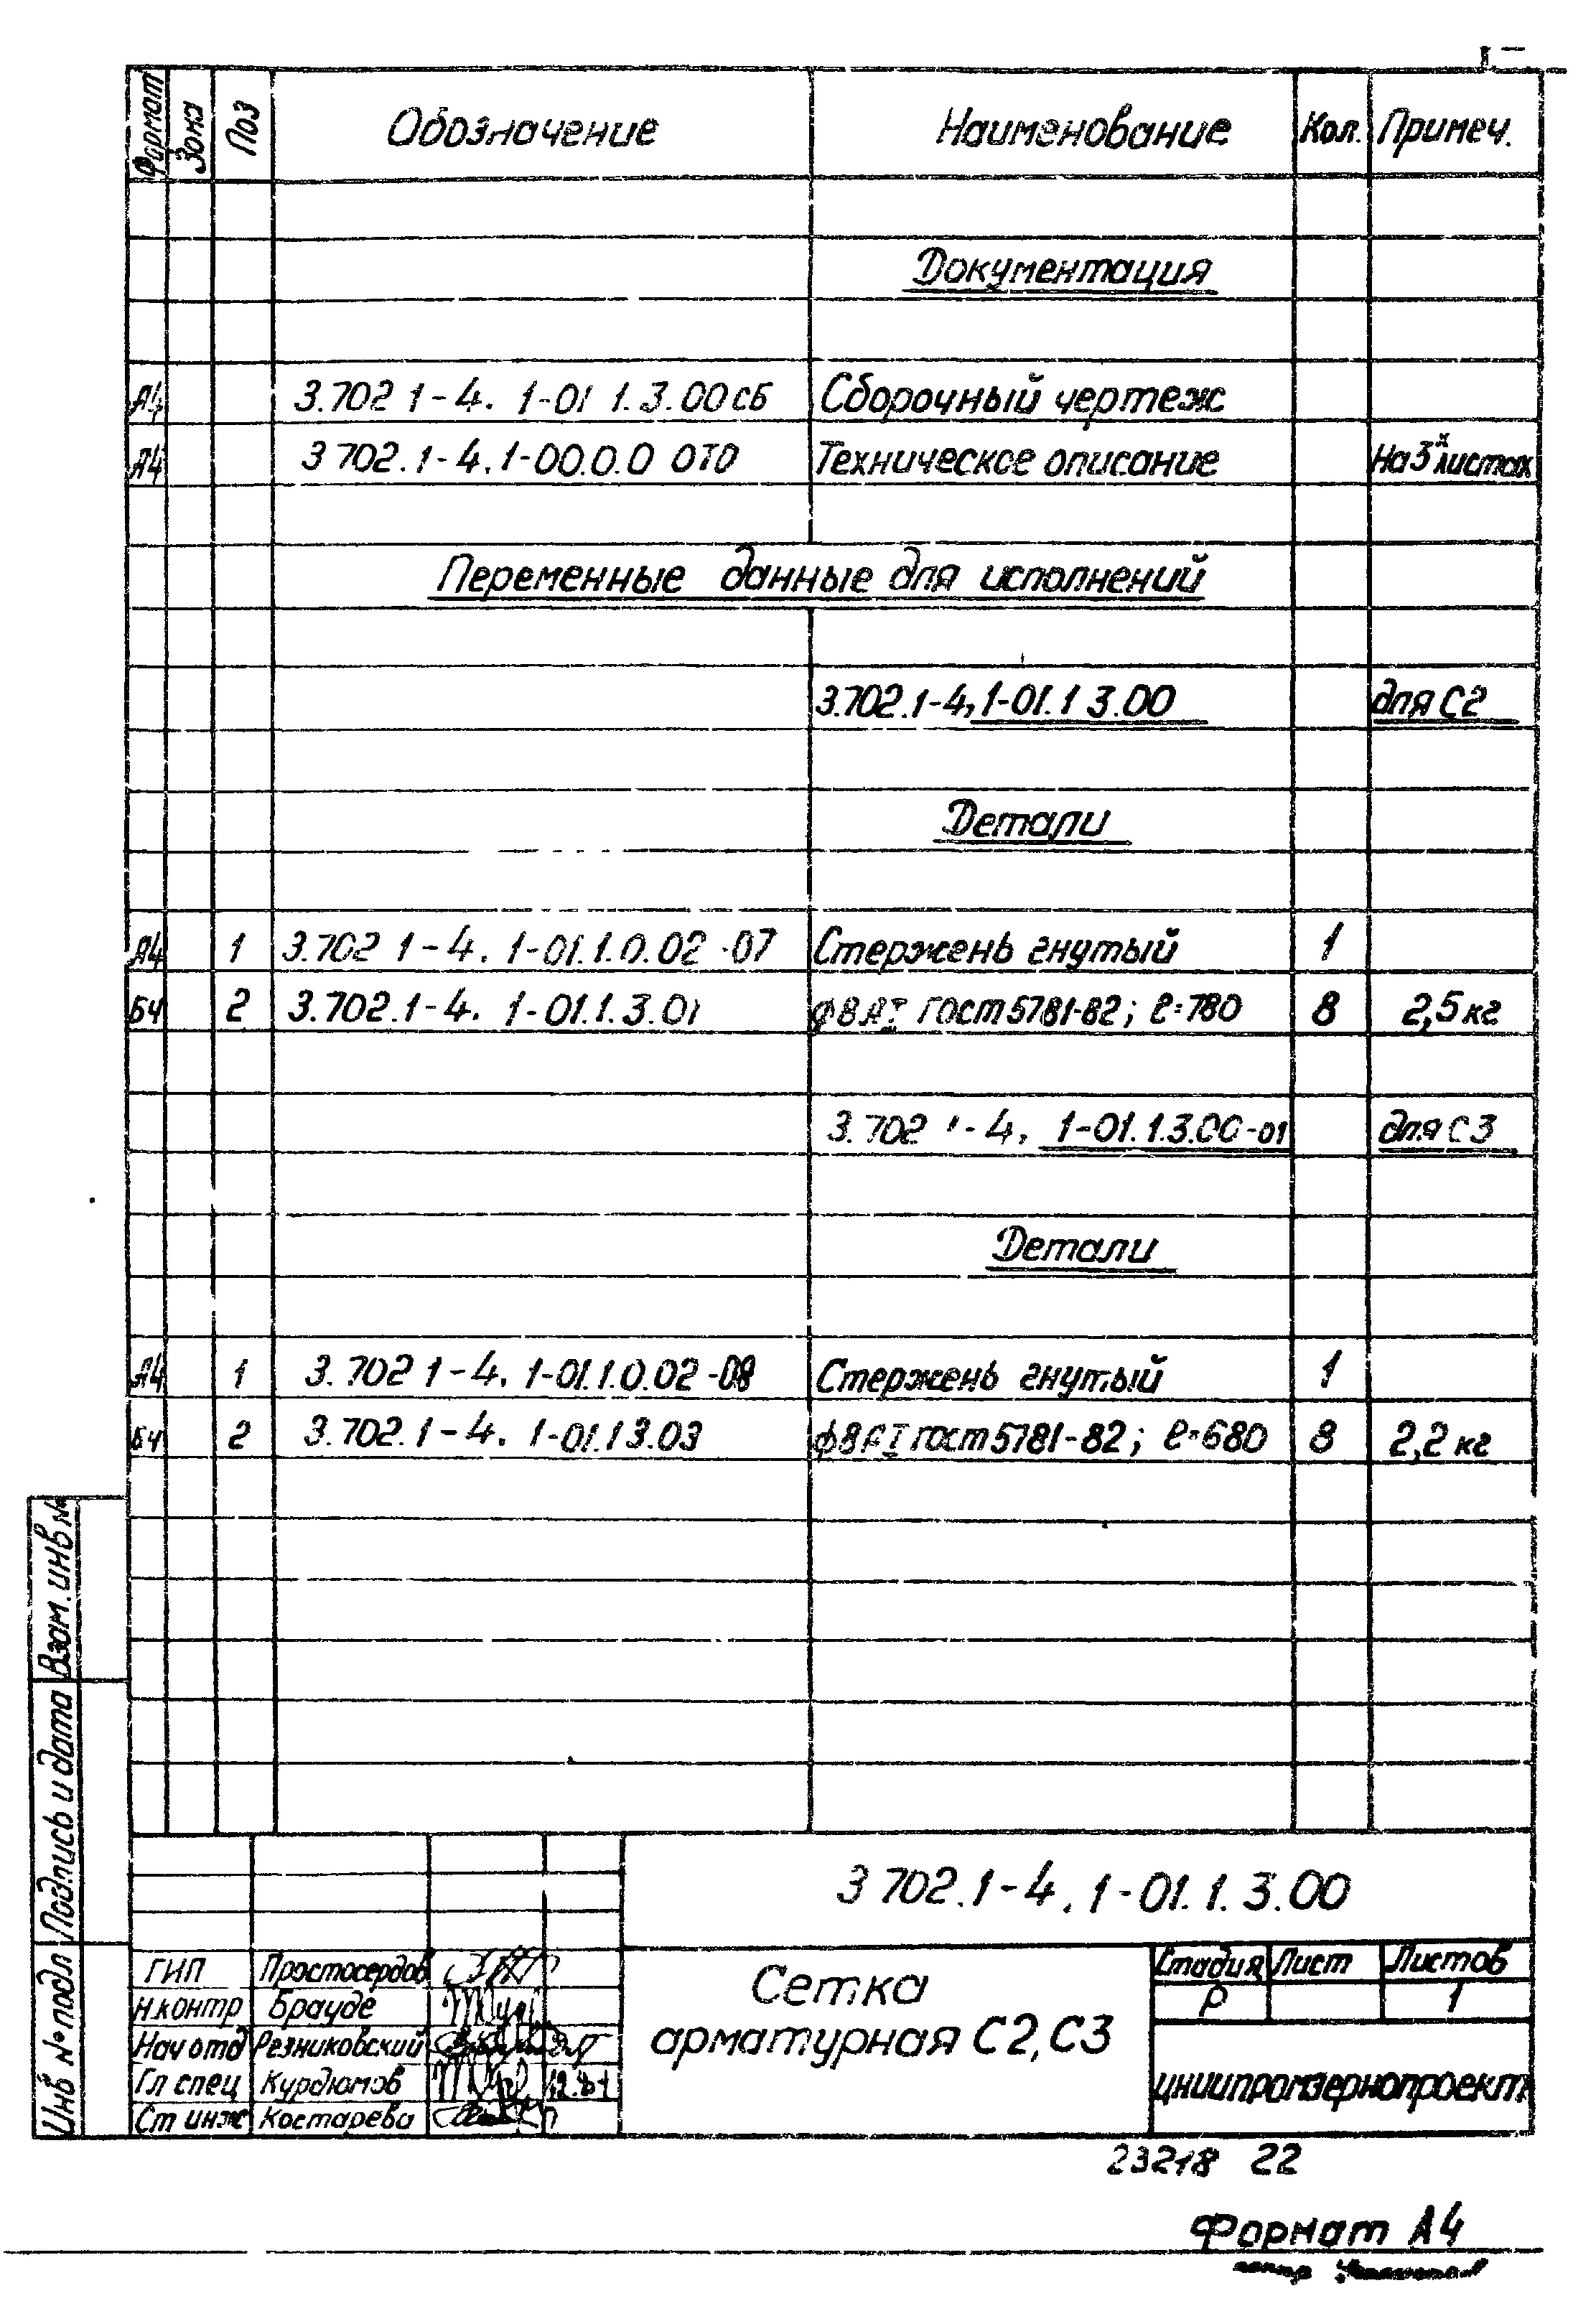 Формат Зона Поз Обозначение Наименование Кол. Примеч.
Документация
А4 3.702 1-4. 1-01 1.3.00СБ Сборочный чертеж
А4 3 702.1-4.1-00.0.0 0ТО Техническое описание На 3х листах
Переменные данные для исполнений
3.702.1-4, 1-01.1 3.00 для С2
Детали
А4 1 3.702 1-4. 1-01.1.0.02-07 Стержень гнутый 1
БЧ 2 3.702.1-4. 1-01.1.3.01 ф8АI ГОСТ 5781-82; ℓ=780 8 2,5кг
3.702 1-4. 1-01.1.3.00-01 для С3
Детали
А4 1 3.702 1-4. 1-01.1.0.02-08 Стержень гнутый 1
БЧ 2 3.702.1-4. 1-01.1 3.03 ф8АI ГОСТ 5781-82; ℓ=680 8 2,2кг
Взам. инв №
Подпись и дата
Инв № подл
3 702.1-4. 1-01.1.3.00
ГИП Простосердов
Н.контр Брауде
Нач отд Резниковский
Гл спец Курдюмов
Ст инж Костарева
Сетка
арматурная С2, С3
Стадия Лист Листов
Р 1
ЦНИИпромзернопроект
23218 22
Формат А4